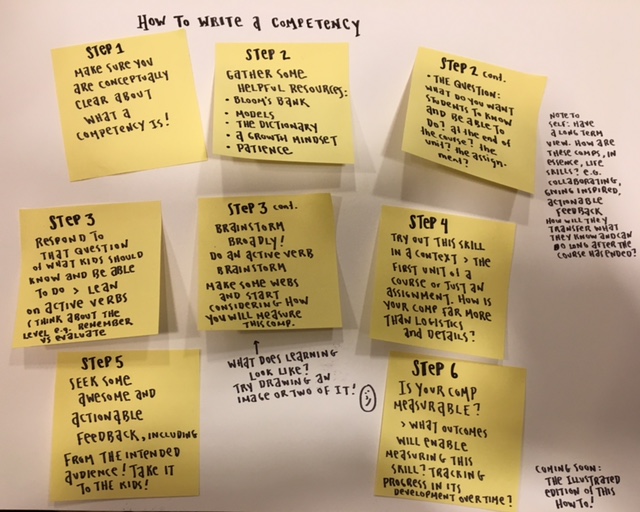 HOW TO WRITE A COMPETENCY
STEP 1
MAKE SURE YOU
ARE CONCEPTUALLY
CLEAR ABOUT
WHAT A
COMPETENCY IS!
STEP 2
GATHER SOME
HELPFUL RESOURCES:
• BLOOM'S BANK
• MODELS
• THE DICTIONARY
• A GROWTH MINDSET
• PATIENCE
STEP 2 CONT.
• THE QUESTION:
WHAT DO YOU WANT
STUDENTS TO KNOW
AND BE ABLE TO
DO? AT THE END OF
THE COURSE? THE
UNIT? THE ASSIGN-
MENT?
NOTE TO
SELF: HAVE
A LONG TERM
VIEW. HOW ARE
THESE COMPS, IN
ESSENCE, LIFE
SKILLS? E.G.
COLLABORATING,
GIVING INSPIRED,
ACTIONABLE
FEEDBACK
HOW WILL THEY
TRANSFER WHAT
THEY KNOW AND CAN
DO LONG AFTER THE
COURSE HAS ENDED?
STEP 3
RESPOND TO
THAT QUESTION
OF WHAT KIDS SHOULD
KNOW AND BE ABLE
TO DO > LEAN
ON ACTIVE VERBS
& THINK ABOUT THE
LEVEL E.G. REMEMBER
VS EVALUATE
STEP 3 CONT.
BRAINSTORM
BROADLY!
DO AN ACTIVE VERB
BRAINSTORM
MAKE SOME WEBS
AND START
CONSIDERING HOW
YOU WILL MEASURE
THIS COMP.
↑
WHAT DOES LEARNING
LOOK LIKE?
TRY DRAWING AN
IMAGE OR TWO OF IT! :)
STEP 4
TRY OUT THIS SKILL
IN A CONTEXT > THE
FIRST UNIT OF A
COURSE OR JUST AN
ASSIGNMENT. HOW IS
YOUR COMP FAR MORE
THAN LOGISTICS
AND DETAILS?
STEP 5
SEEK SOME
AWESOME AND
ACTIONABLE
FEEDBACK, INCLUDING
FROM THE INTENDED
AUDIENCE! TAKE IT
TO THE KIDS!
STEP 6
IS YOUR COMP
MEASURABLE?
> WHAT OUTCOMES
WILL ENABLE
MEASURING THIS
SKILL? TRACKING
PROGRESS IN ITS
DEVELOPMENT OVER TIME?
COMING SOON:
THE ILLUSTRATED
EDITION OF THIS
HOW TO!